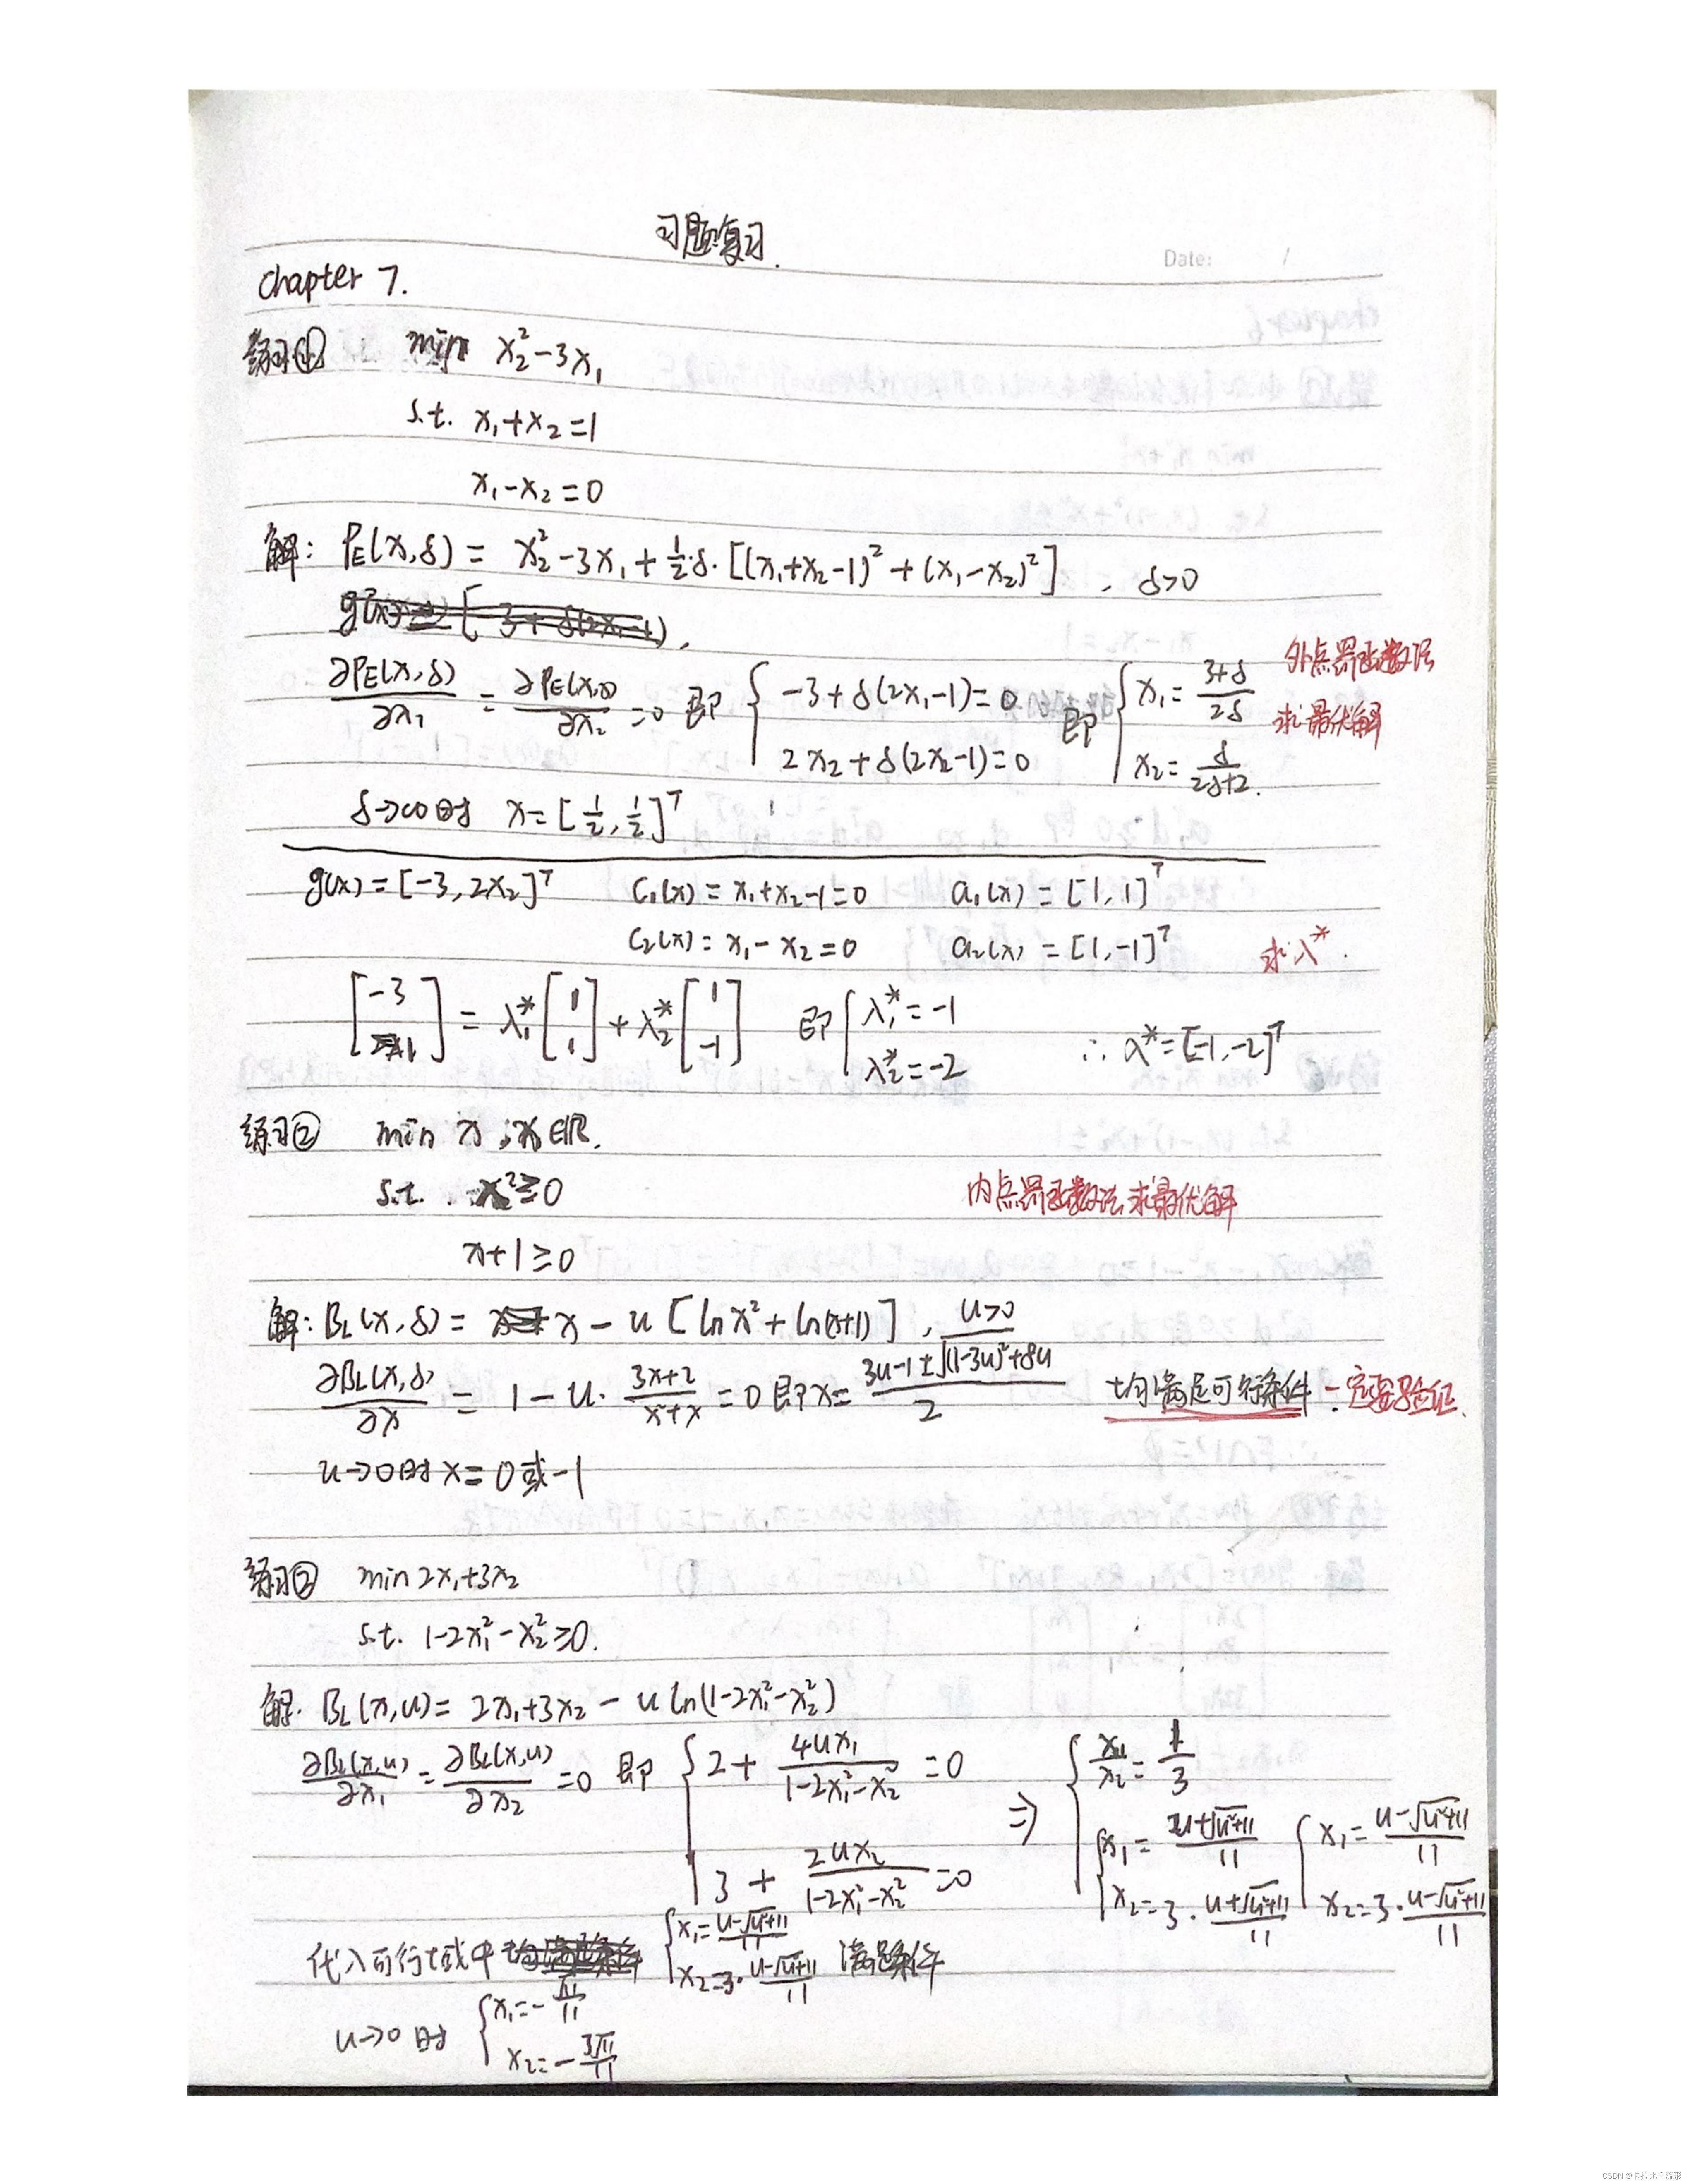 习题复习.
Date: /
Chapter 7.
练习① min x₂²-3x₁
s.t. x₁+x₂=1
x₁-x₂=0
解: P_E(x,δ) = x₂²-3x₁+½δ·[(x₁+x₂-1)²+(x₁-x₂)²] , δ>0
∂P_E(x,δ)/∂x₁ = ∂P_E(x,δ)/∂x₂ =0 即 { -3+δ(2x₁-1)=0 2x₂+δ(2x₂-1)=0 即 { x₁=(3+δ)/2δ x₂=δ/(2δ+2).
外点罚函数法
求最优解
δ→∞时 x=[½,½]ᵀ
g(x)=[-3,2x₂]ᵀ C₁(x)=x₁+x₂-1=0 a₁(x)=[1,1]ᵀ
C₂(x)=x₁-x₂=0 a₂(x)=[1,-1]ᵀ 求λ*.
[-3 1] = λ₁*[1 1]+λ₂*[1 -1] 即 { λ₁*=-1 λ₂*=-2 ∴ λ*=[-1,-2]ᵀ
练习② min x ; x∈R.
s.t. x²≥0
内点罚函数法求最优解
x+1≥0
解: B_L(x,δ)= x-u[lnx²+ln(x+1)] , u>0
∂B_L(x,δ)/∂x = 1-u·(3x+2)/(x²+x) =0 即x=(3u-1±√((1-3u)²+8u))/2 均满足可行条件-定要验证.
u→0时x=0或-1
练习② min 2x₁+3x₂
s.t. 1-2x₁²-x₂²≥0.
解. B_L(x,u)= 2x₁+3x₂-u ln(1-2x₁²-x₂²)
∂B_L(x,u)/∂x₁=∂B_L(x,u)/∂x₂=0 即 { 2+4ux₁/(1-2x₁²-x₂²)=0 3+2ux₂/(1-2x₁²-x₂²)=0 ⇒ { x₁/x₂=1/3 { x₁=(u+√(u²+11))/11 x₂=3·(u+√(u²+11))/11 { x₁=(u-√(u²+11))/11 x₂=3·(u-√(u²+11))/11
代入可行域中 { x₁=(u-√(u²+11))/11 x₂=3·(u-√(u²+11))/11 满足条件
u→0时 { x₁=-√11/11 x₂=-3√11/11
CSDN @卡拉比丘流形